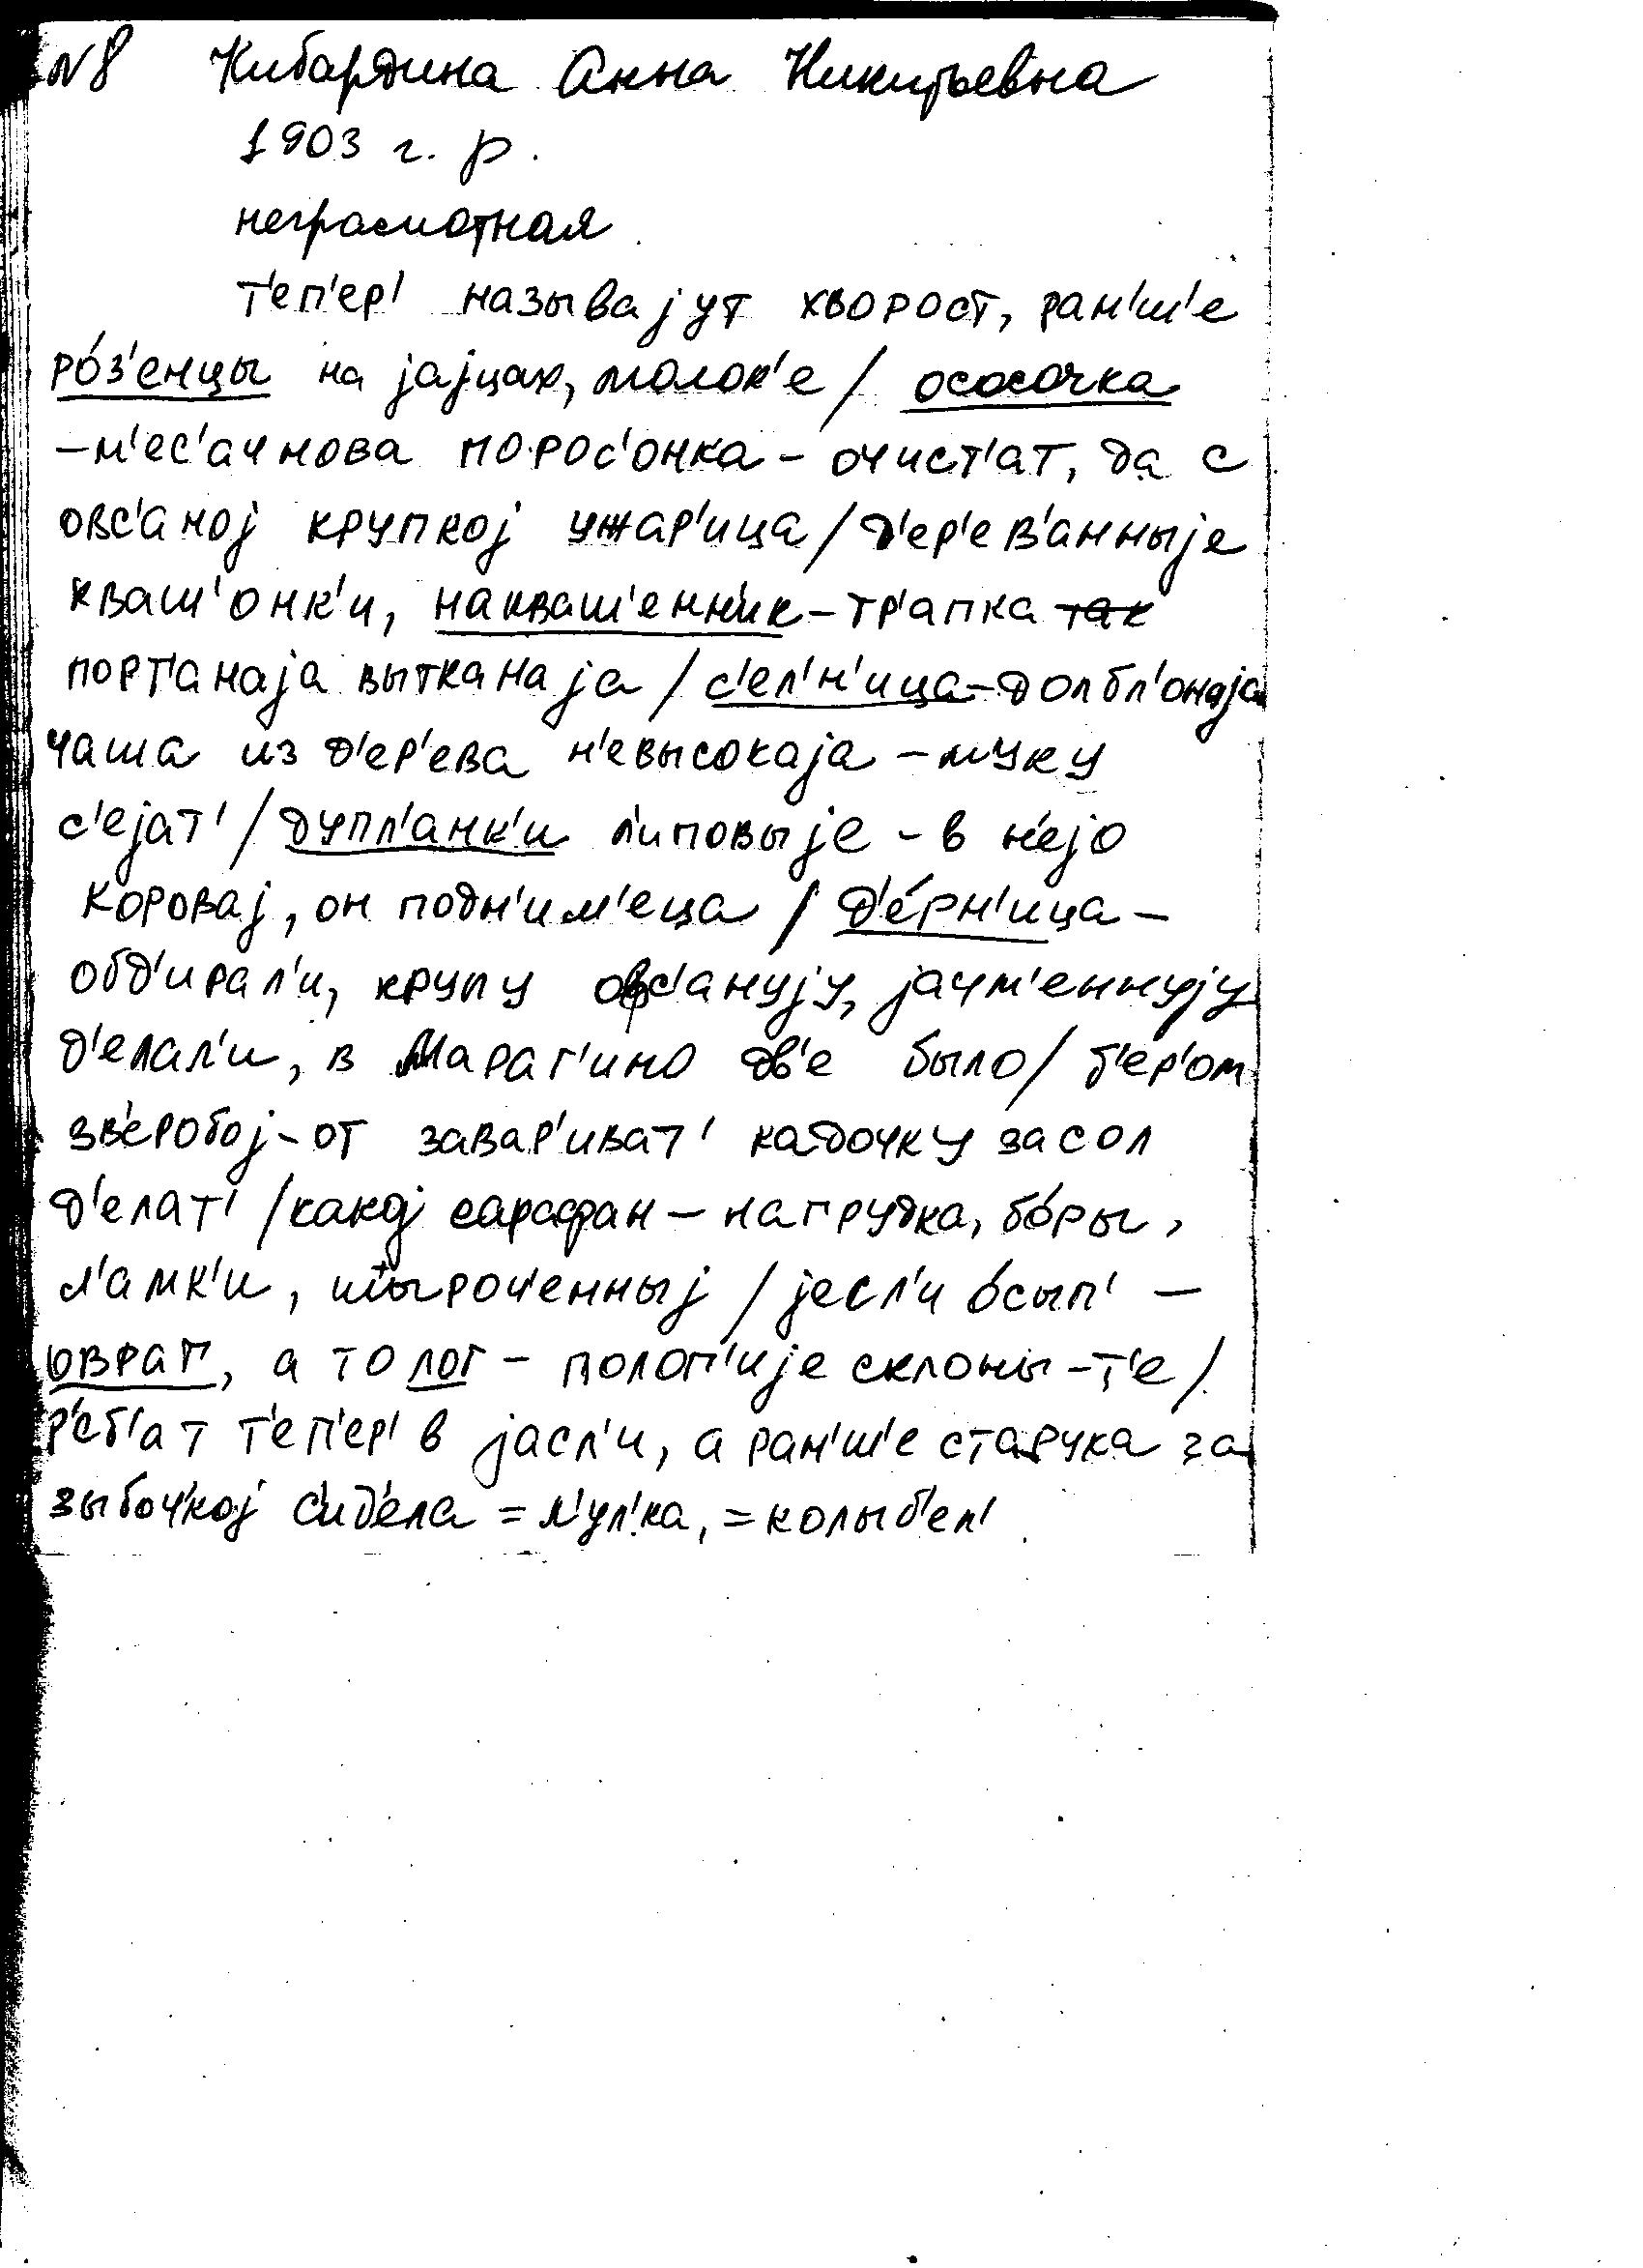 N8 Кибардина Анна Никитьевна
1903 г. р.
неграмотная
т'еп'ер' называјут хворост, ран'ш'е
ро́з'енцы на јајцах, молок'е / ососочка
– м'ес'ачнова порос'онка – очист'ат, да с
овс'аној крупкој ужар'ица / д'ер'ев'анныје
кваш'онк'и, накваш'енн'ик – тр'апка так
порт'анаја вытканаја / с'ел'н'ица – долбл'онаја
чаша из д'ер'ева н'евысокаја – муку
с'ејат' / дупл'анк'и л'иповыје – в н'ејо
коровај, он подн'им'еца / д'е́рн'ица –
обд'ирал'и, крупу овс'анују, јачм'еннују
д'елал'и, в Мараг'ино дв'е было / б'ер'ом
зв'еробој-от завар'иват' кадочку засол
д'елат' / какој сарафан – нагрудка, бо́ры,
л'амк'и, шыроч'енныј / јесл'и о́сып' –
овраг, а то лог – полог'ије склоны – т'е /
р'еб'ат т'еп'ер' в јасл'и, а ран'ш'е старука за
зыбоч'кој с'ид'ела = л'ул'ка, = колыб'ел'